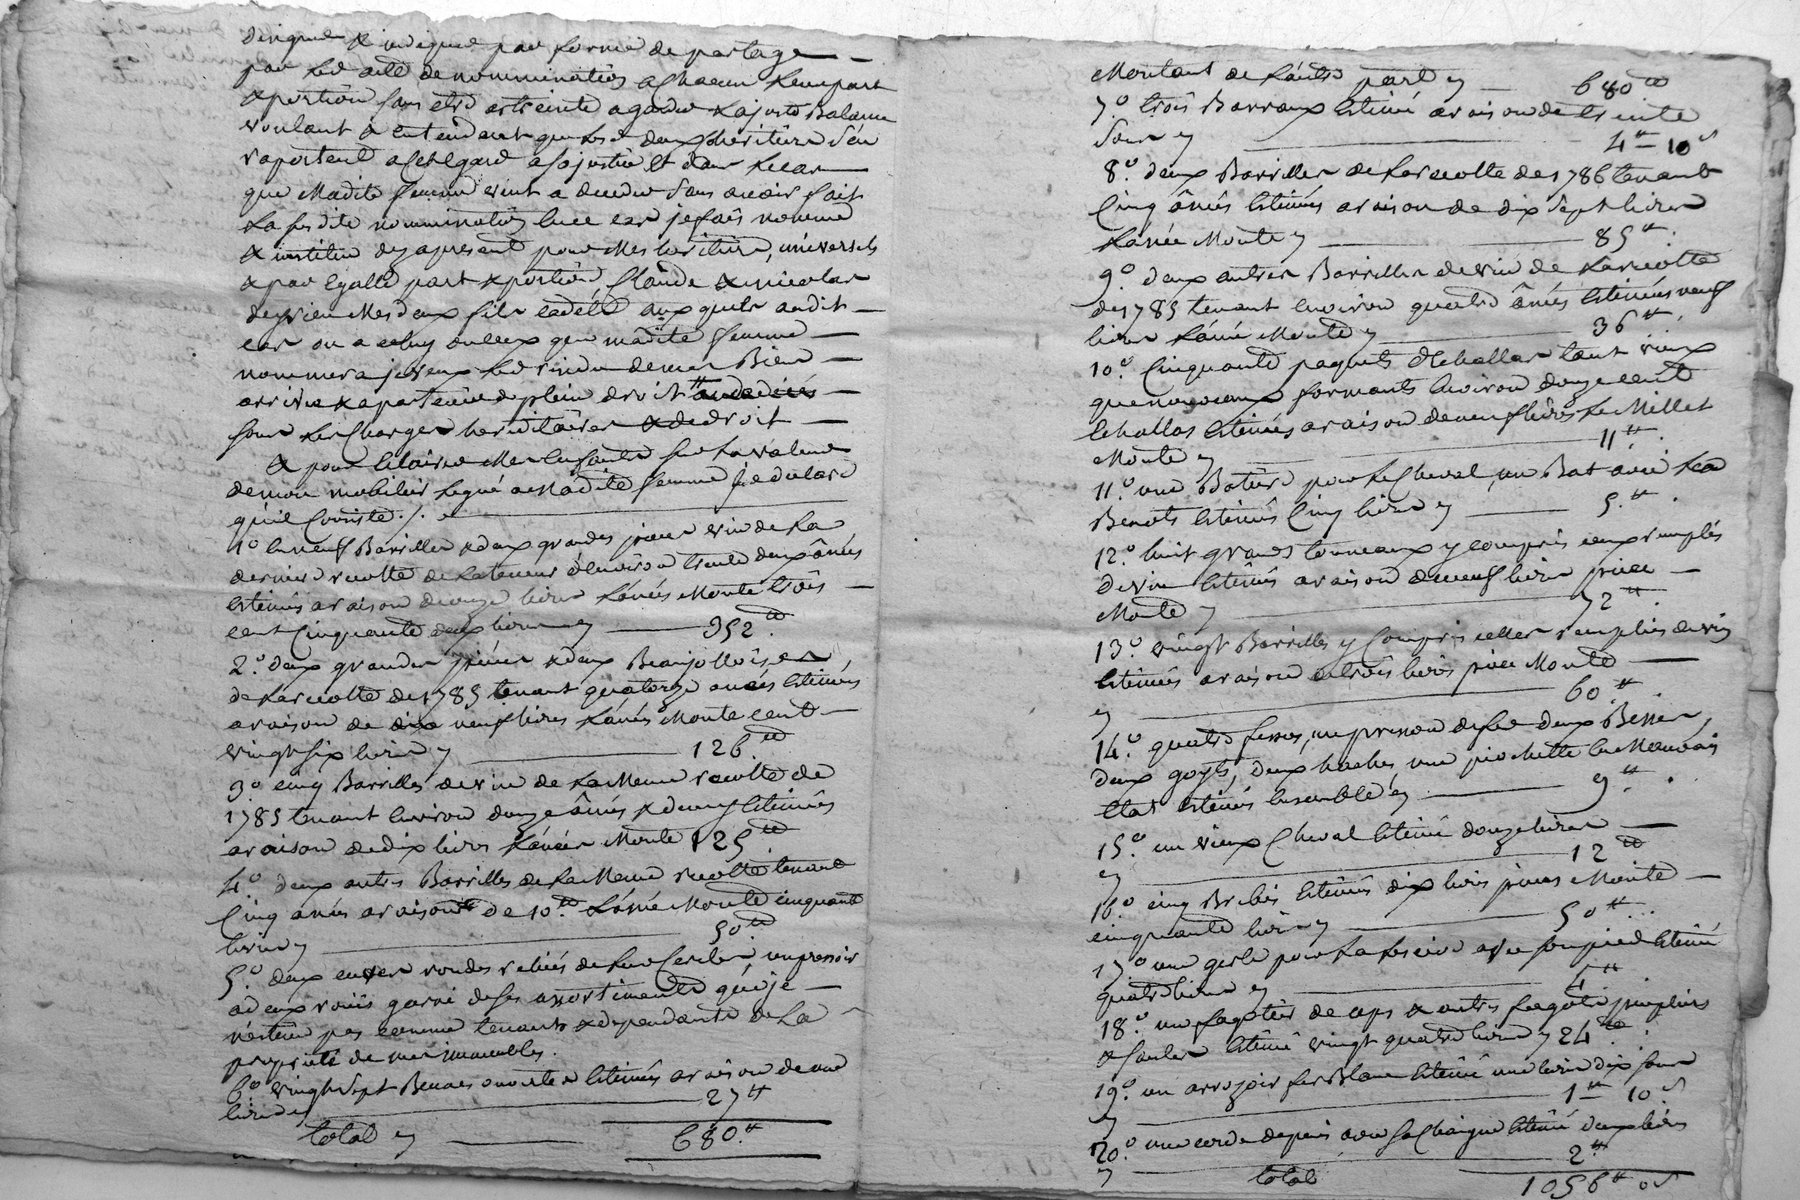 designé & indiqué par forme de partage
par led acte de nommination a chacun leur part
& portion sans etre astreinte a garder la juste Balance
voulant & entendant que les d. deux heritiers s'en
raportent a cet egard a sa justice et dans le cas
que Madite femme vint a deceder sans avoir fait
la susdite nomination audit cas je fais nomme
& institue dez apresent pour Mes heritiers universels
& par egalle part & portion Claude & nicolas
Mes deux fils cadets auxquels audit
cas ou a celuy d'iceux que madite femme
nommera je veux led residu de mes Biens
arrive & apartienne de plein droit
sous les Charges hereditaires & de droit
& pour eclairer Mes Enfants sur la valeur
de mon mobilier legué a Madite femme je declare
qu'il Consiste ./.
1.° en neuf Barrilles & deux grandes pieces vin de la
derniere recolte de la teneur d'environ trente deux ânées
estimés a raison de onze livres l'ânée Monte trois
cent Cinquante deux livres cy 352.tt
2.° deux grandes pieces & deux Beaujolloises
de la recolte de 1785 tenant quatorze anées estimés
a raison de neuf livres l'ânée Monte cent
vingt six livres cy 126.tt
3.° cinq Barrilles de vin de la Meme recolte de
1785 tenant Environ douze ânées & demy estimées
a raison de dix livres l'ânée Monte 125.tt
4.° deux autres Barrilles de la Meme recolte tenant
Cinq anées a raison de 10.tt l'ânée Monte cinquante
livres cy 50.tt
5.° deux cuves rondes reliées de leurs Cercles, un pressoir
a deux garni de ses assortiments que je
n'estime pas comme tenants & dependants de la
propriété de mes immeubles.
6.° vingt sept Bennes estimés a raison de une
livre cy 27tt
total cy 680.tt
Montant de l'autre part cy 680tt
7.° trois Barraux estimé a raison de trente
sous cy 4tt 10s
8.° deux Barrilles de la recolte de 1786 tenant
Cinq ânées estimées a raison de dix sept livres
l'anée Monte cy 85tt.
9.° deux autres Barrilles de vin de la recolte
de 1785 tenant environ quatre ânées estimées neuf
livres l'ânée Monte cy 36tt.
10.° Cinquante paquets d'Echallas tant vieux
que nouveaux formants Environ douze cent
Echallas estimés a raison de neuf livres le Millet
Monte cy 11tt.
11.° une pour le Cheval, un Bat avec les
Benots estimés Cinq livres cy 5.tt.
12.° huit grands tonneaux y compris ceux remplis
de vin estimés a raison de neuf livres piece
Monte cy 72tt.
13.° vingt Barrilles y Compris celles remplies de vin
estimées a raison de trois livres piece Monte
cy 60tt.
14.° quatre un presson de fer deux Besses,
deux goyts, deux haches une piochette en Mauvais
Etat estimés ensemble cy 9tt.
15.° un vieux Cheval Estimé douze livres
cy 12tt
16.° cinq Brebis Estimés dix livres piece Monte
cinquante livres cy 50tt.
17.° une gerle pour la lescive avec son pied estimé
quatre livres cy 4tt
18.° un fagotier de ceps & autres fagots peupliers
& saules estimé vingt quatre livres cy 24tt.
19.° un arrozoir fer Blanc estimé une livre dix sous
cy 1tt 10s
20.° une corde de puis avec sa Chaine estimé deux livres
cy 2tt
total 1056tt 0s